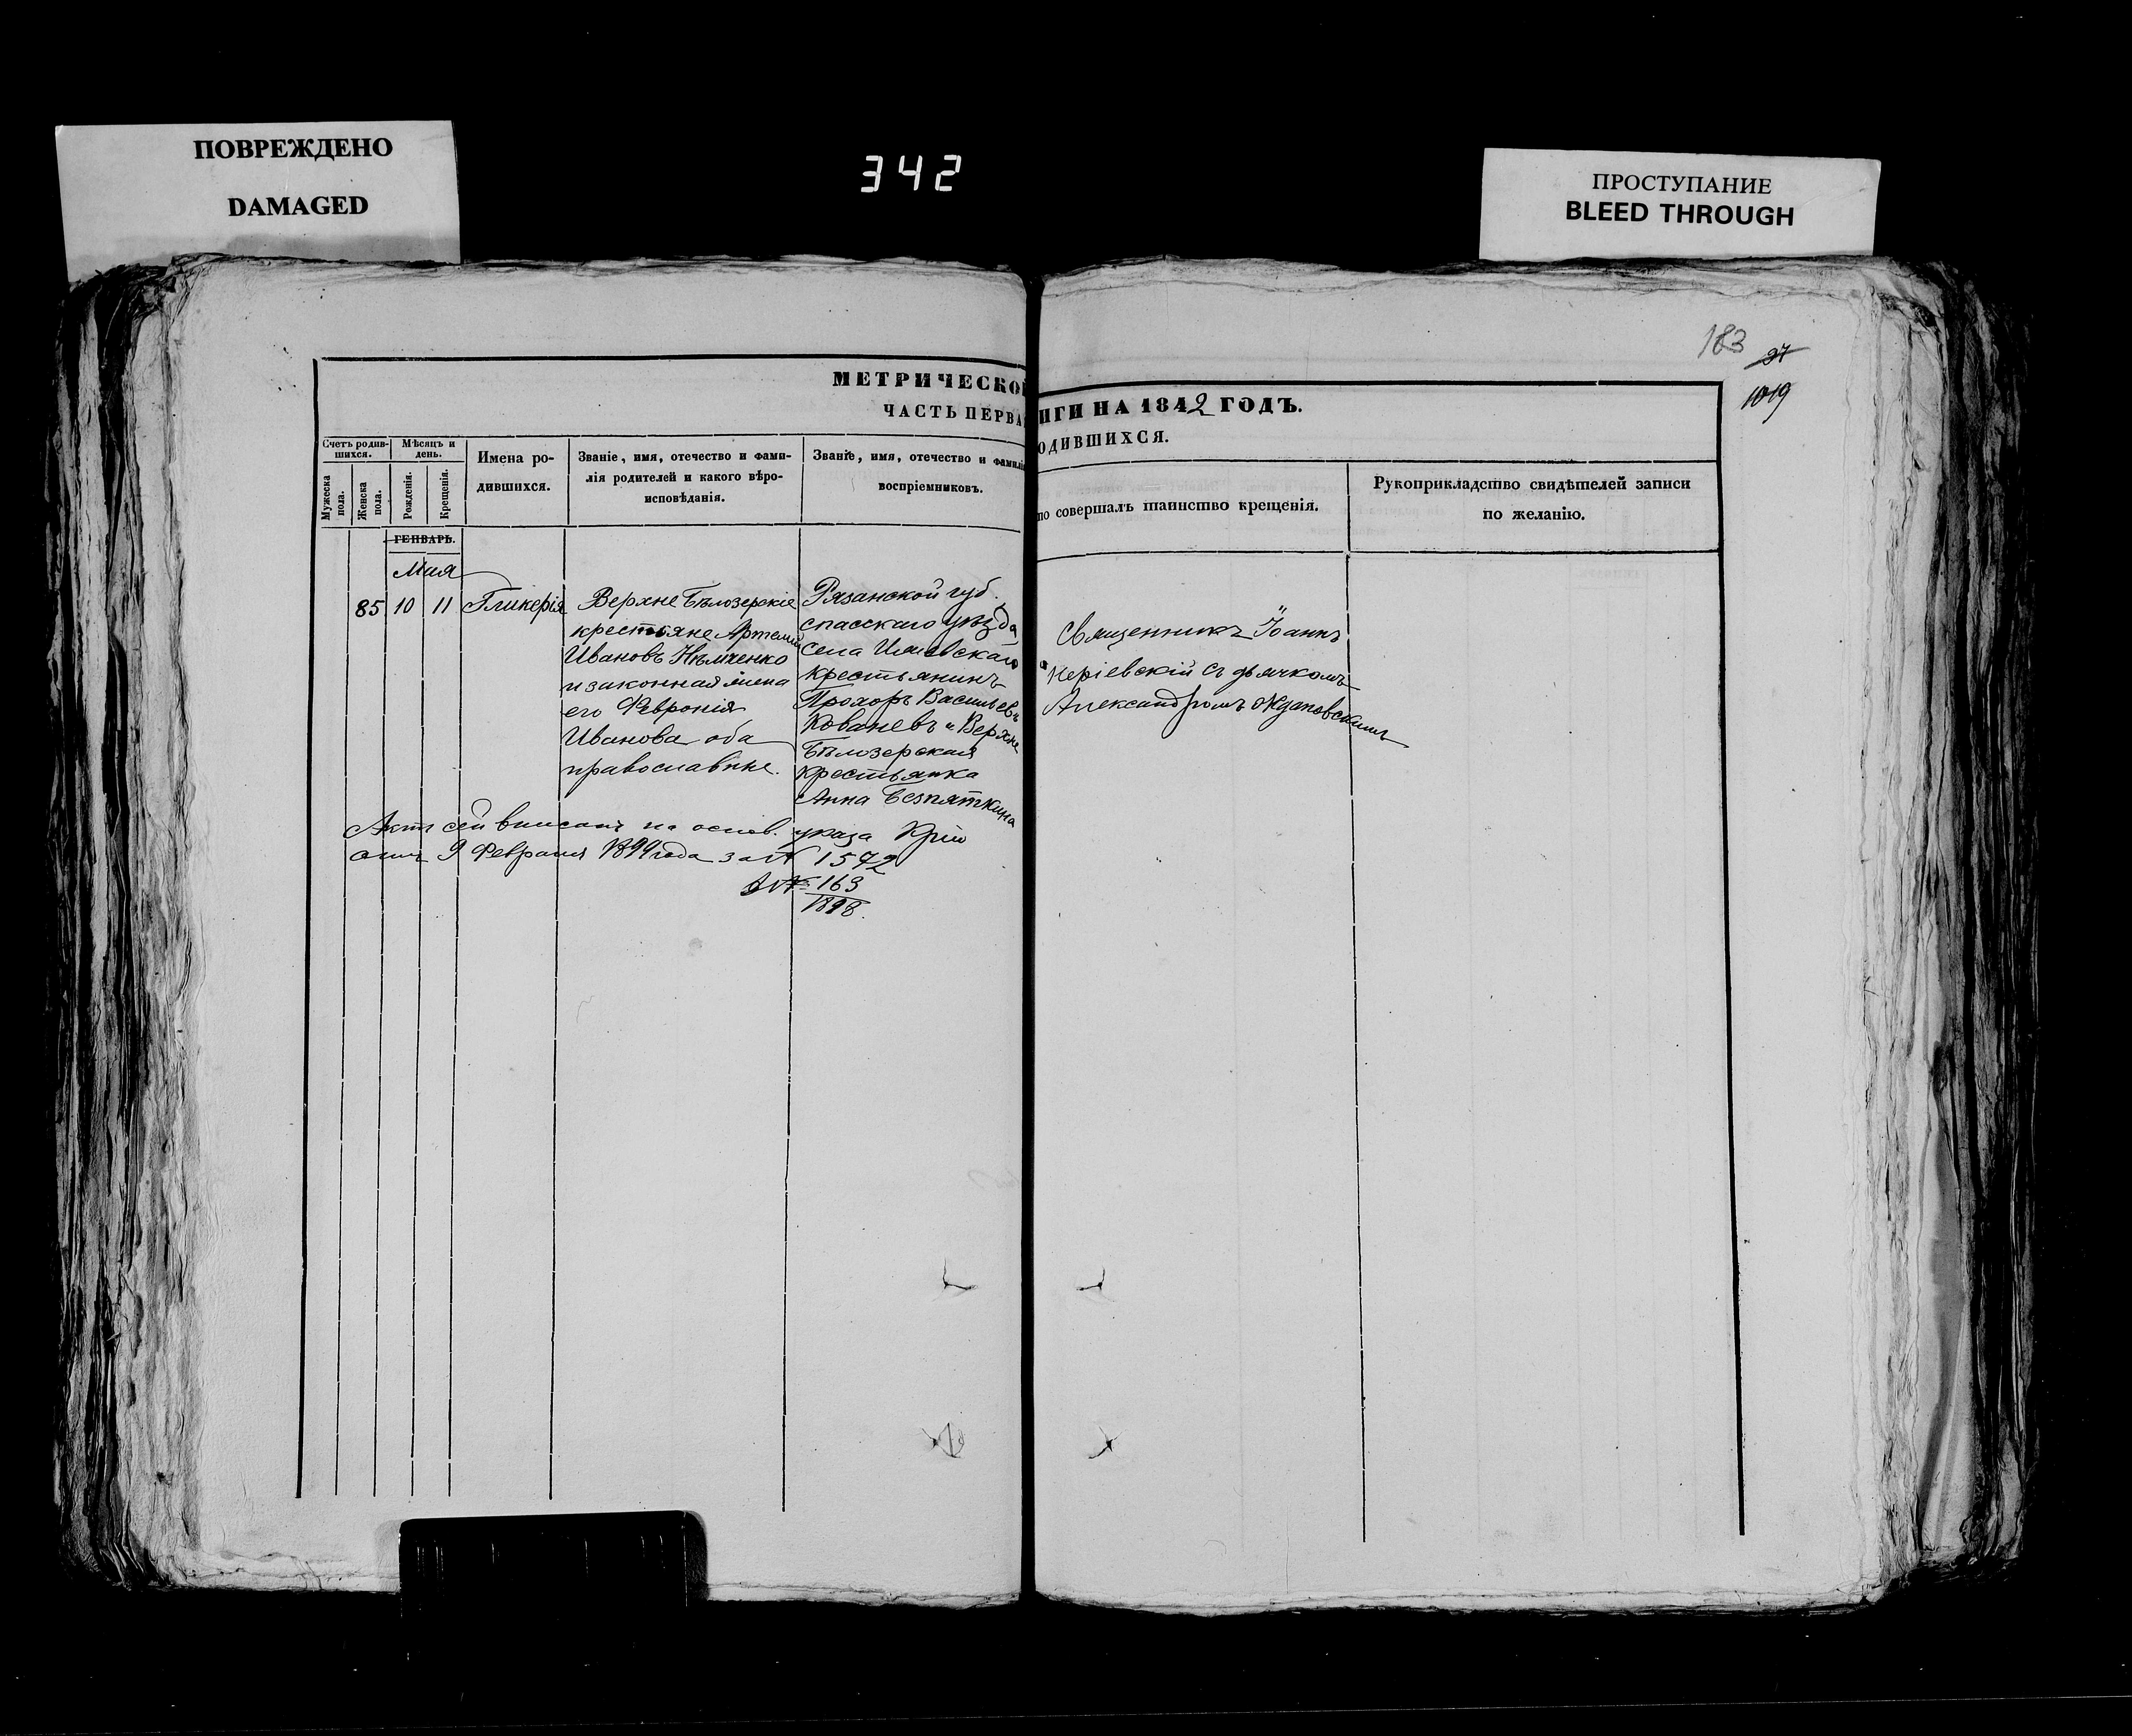 ПОВРЕЖДЕНО
DAMAGED
342
ПРОСТУПАНИЕ
BLEED THROUGH
183
27
1019
МЕТРИЧЕСКО
ИГИ НА 1842 ГОДЪ.
ЧАСТЬ ПЕРВА
ОДИВШИХСЯ.
Счетъ родив-
шихся.
Мужеска
пола.
Женска
пола.
Мѣсяцъ и
день.
Рожденія.
Крещенія.
Имена ро-
дившихся.
Званіе, имя, отечество и фами-
лія родителей и какого вѣро-
исповѣданія.
Званіе, имя, отечество и фамилі
воспріемниковъ.
то совершалъ таинство крещенія.
Рукоприкладство свидѣтелей записи
по желанію.
ГЕНВАРЬ.
Мая
85 10 11 Гликерія
Верхне Бѣлозерскіе
крестьяне Артемій
Ивановъ Нѣмченко
и законная жена
его Февронія
Иванова оба
православные.
Рязанской губ.
спасскаго уѣзда
села
крестьянинъ
Прохоръ Васильевъ
Кованевъ и Верхне
Бѣлозерская
крестьянка
Анна Безпяткина
Священникъ Іоаннъ
съ дьячкомъ
Александромъ Ждановскимъ
Актъ сей вписанъ на основ. указа
отъ 9 Февраля 1899 года за № 1572
№ 163
1898.